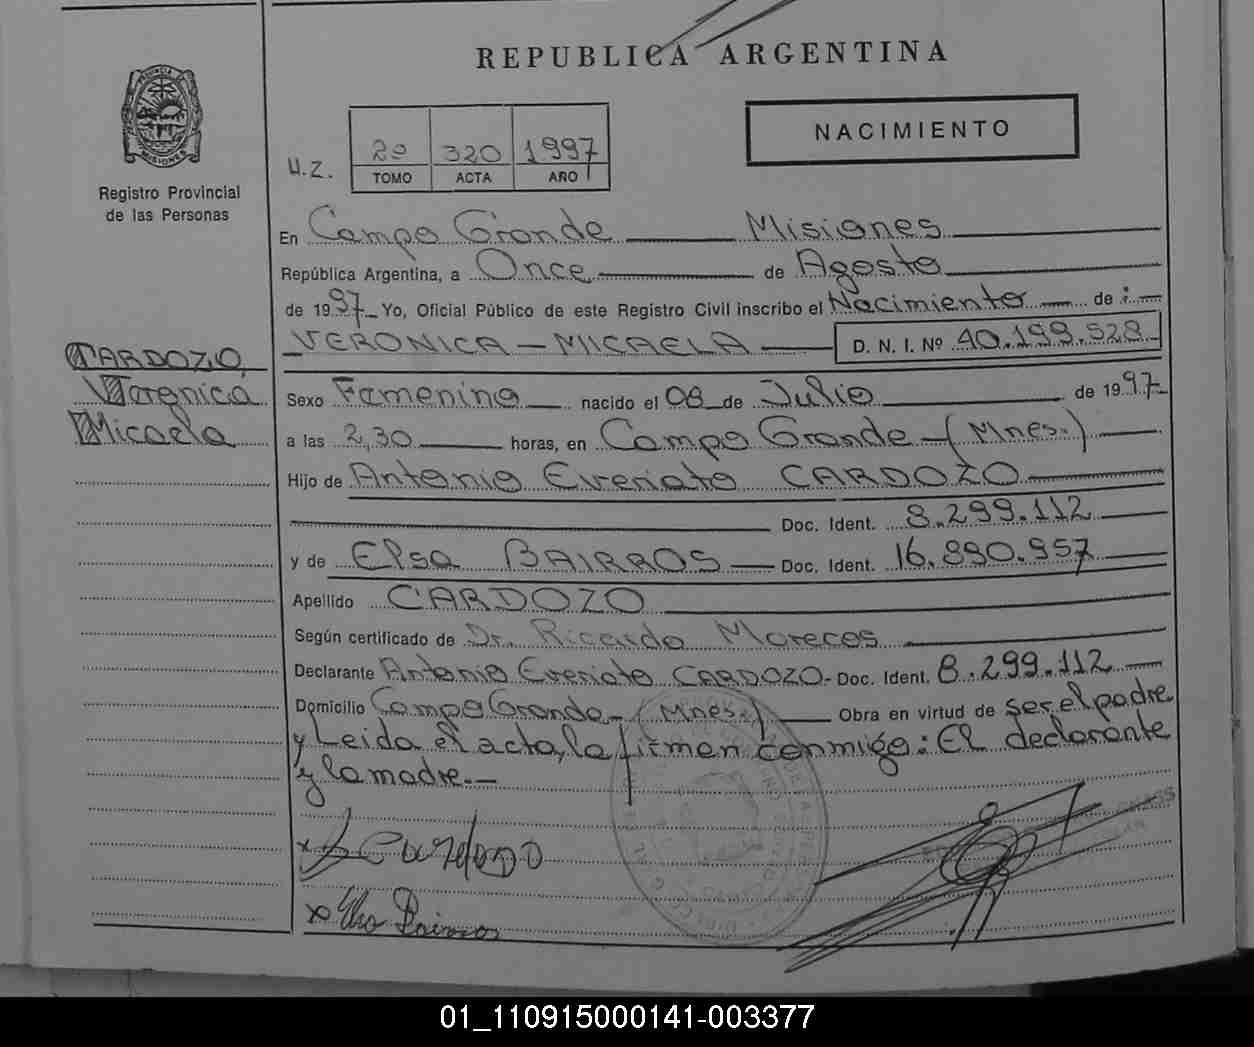 REPUBLICA ARGENTINA
Registro Provincial
de las Personas
U.Z.
2º 320 1997
TOMO ACTA AÑO
NACIMIENTO
En Campo Grande Misiones
República Argentina, a Once de Agosto
de 1997 Yo, Oficial Público de este Registro Civil inscribo el Nacimiento de :
VERONICA - MICAELA D. N. I. Nº 40.199.528
CARDOZO,
Veronica
Micaela
Sexo Femenino nacido el 08 de Julio de 1997
a las 2,30 horas, en Campo Grande - (Mnes.)
Hijo de Antonio Everiato CARDOZO
Doc. Ident. 8.299.112
y de Elsa BAIRROS Doc. Ident. 16.890.957
Apellido CARDOZO
Según certificado de Dr. Ricardo Mareces
Declarante Antonio Everiato CARDOZO- Doc. Ident. 8.299.112
Domicilio Campo Grande - (Mnes.) Obra en virtud de ser el padre
y Leida el acta, la firman conmigo: El declarante
y la madre.-
x Elsa Bairros
01_110915000141-003377